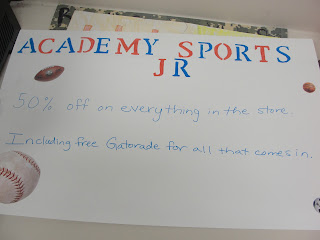 ACADEMY SPORTS
JR
50% off on everything in the store.
Including free Gatorade for all that comes in.